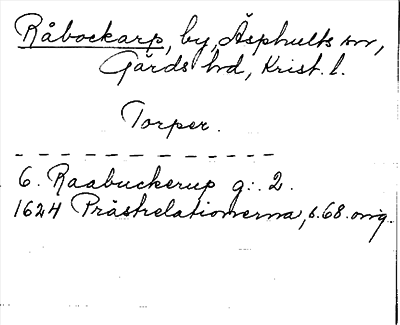 Råbockarp, by, Äsphults sn,
Gärds hd, Krist. l.
Torper.
6. Raabuckerup g:. 2.
1624 Prästrelationerna, s. 68. orig.